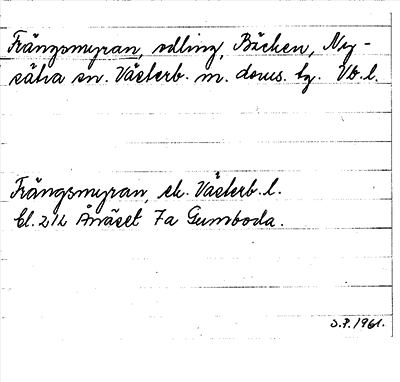 Frängsmyran, odling, Bäcken, Ny-
sätra sn. Västerb. m. doms. tg. Vb. l.
Frängsmyran, ek. Västerb. l.
bl. 212 Ånäset 7a Gumboda.
D.P. 1961.